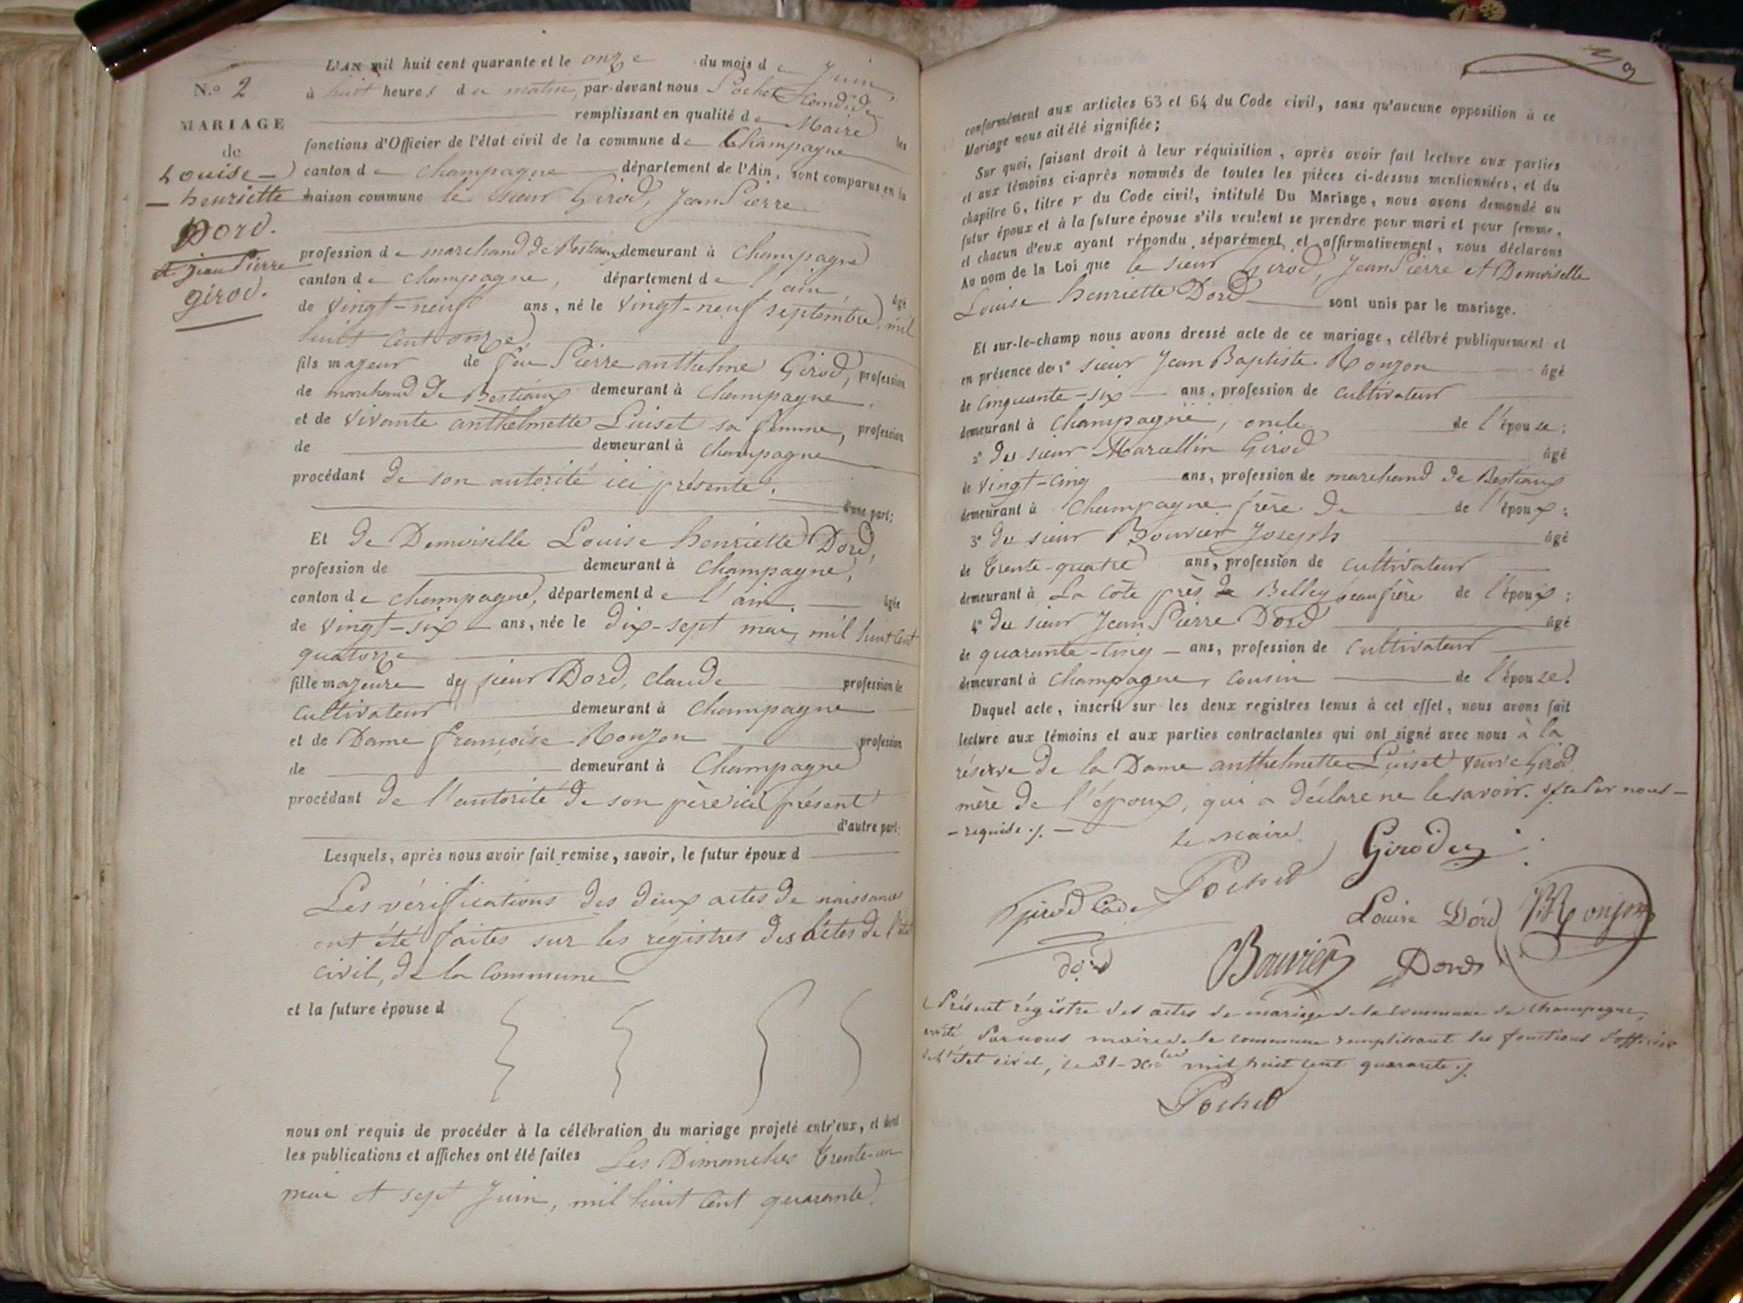 N.o 2
MARIAGE
de
Louise
henriette
Dord.
et jean Pierre
girod.
L'AN mil huit cent quarante et le onze du mois de Juin,
à huit heures du matin, par-devant nous Pochet
remplissant en qualité de Maire les
fonctions d'Officier de l'état civil de la commune de Champagne
canton de champagne département de l'Ain, sont comparus en la
maison commune le sieur Girod, Jean Pierre
profession de marchand de Bestiaux demeurant à Champagne
canton de champagne, département de l'ain, âgé
de vingt-neuf ans, né le vingt-neuf septembre, mil
huit cent onze,
fils majeur de feu Pierre anthelme Girod, profession
de marchand de Bestiaux demeurant à champagne.
et de vivante anthelmette Luiset sa femme, profession
de demeurant à champagne
procédant de son autorité ici présente.
d'une part;
Et de Demoiselle Louise henriette Dord,
profession de demeurant à champagne,
canton de champagne, département de l'ain. âgée
de vingt-six ans, née le dix-sept mai, mil huit cent
quatorze
fille majeure de sieur Dord, claude profession de
cultivateur demeurant à champagne
et de Dame françoise Ronzon profession
de demeurant à Champagne
procédant de l'autorité de son père ici présent
d'autre part;
Lesquels, après nous avoir fait remise, savoir, le futur époux d
Les vérifications des deux actes de naissances
ont été faites sur les registres des actes de l'état
civil, de la commune
et la future épouse d
nous ont requis de procéder à la célébration du mariage projeté entr'eux, et dont
les publications et affiches ont été faites Les Dimanches trente-un
mai et sept Juin, mil huit cent quarante.
conformément aux articles 63 et 64 du Code civil, sans qu'aucune opposition à ce
Mariage nous ait été signifiée;
Sur quoi, faisant droit à leur réquisition, après avoir fait lecture aux parties
et aux témoins ci-après nommés de toutes les pièces ci-dessus mentionnées, et du
chapitre 6, titre V du Code civil, intitulé Du Mariage, nous avons demandé au
futur époux et à la future épouse s'ils veulent se prendre pour mari et pour femme,
et chacun d'eux ayant répondu séparément et affirmativement, nous déclarons
Au nom de la Loi que le sieur Girod, Jean Pierre et Demoiselle
Louise henriette Dord sont unis par le mariage.
Et sur-le-champ nous avons dressé acte de ce mariage, célébré publiquement et
en présence de 1° sieur Jean Baptiste Ronzon âgé
de cinquante-six ans, profession de cultivateur
demeurant à champagne, oncle de l'épouse;
2° du sieur Marcellin Girod âgé
de vingt-cinq ans, profession de marchand de Bestiaux
demeurant à champagne frère de de l'époux;
3° du sieur Bouvier Joseph âgé
de trente-quatre ans, profession de cultivateur
demeurant à La Côte près de Belley beaufrère de l'époux;
4° du sieur Jean Pierre Dord âgé
de quarante-cinq ans, profession de cultivateur
demeurant à champagne, cousin de l'épouse.
Duquel acte, inscrit sur les deux registres tenus à cet effet, nous avons fait
lecture aux témoins et aux parties contractantes qui ont signé avec nous à la
réserve de la Dame anthelmette Luiset veuve Girod
mère de l'époux, qui a déclaré ne le savoir. par nous
requise ./.
Le Maire
Pochet
Girod
girod
Louise Dord
Ronzon
dord
Bouvier
Dord
Présent régistre des actes de mariage de la commune de Champagne,
par nous maire de la commune remplissant les fonctions d'officier
de l'état civil, le 31 Xbre mil huit cent quarante ./.
Pochet